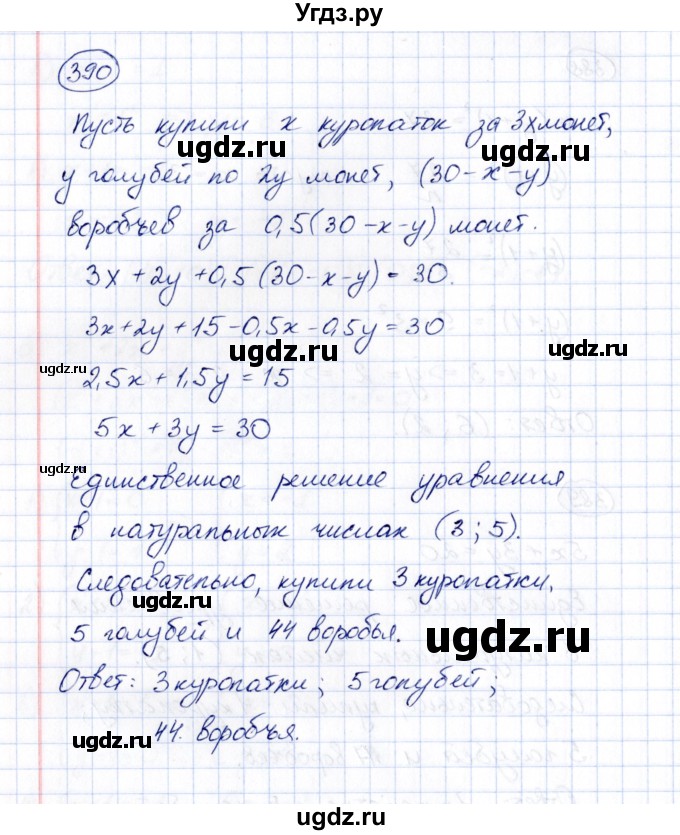 Угдз.ру
390
Пусть купили x куропаток за 3x монет,
ugdz.ru
ugdz.ru
y голубей по 2y монет, (30-x-y)
воробчев за 0,5(30-x-y) монет.
ugdz.ru
3x + 2y + 0,5(30-x-y) = 30.
ugdz.ru
3x + 2y + 15 - 0,5x - 0,5y = 30
ugdz.ru
2,5x + 1,5y = 15
ugdz.ru
5x + 3y = 30
ugdz.ru
Единственное решение уравнения
в натуральных числах (3; 5).
ugdz.ru
Следовательно, купили 3 куропатки,
ugdz.ru
5 голубей и 44 воробья.
ugdz.ru
Ответ: 3 куропатки; 5 голубей;
44 воробья.
ugdz.ru
Угдз.ру